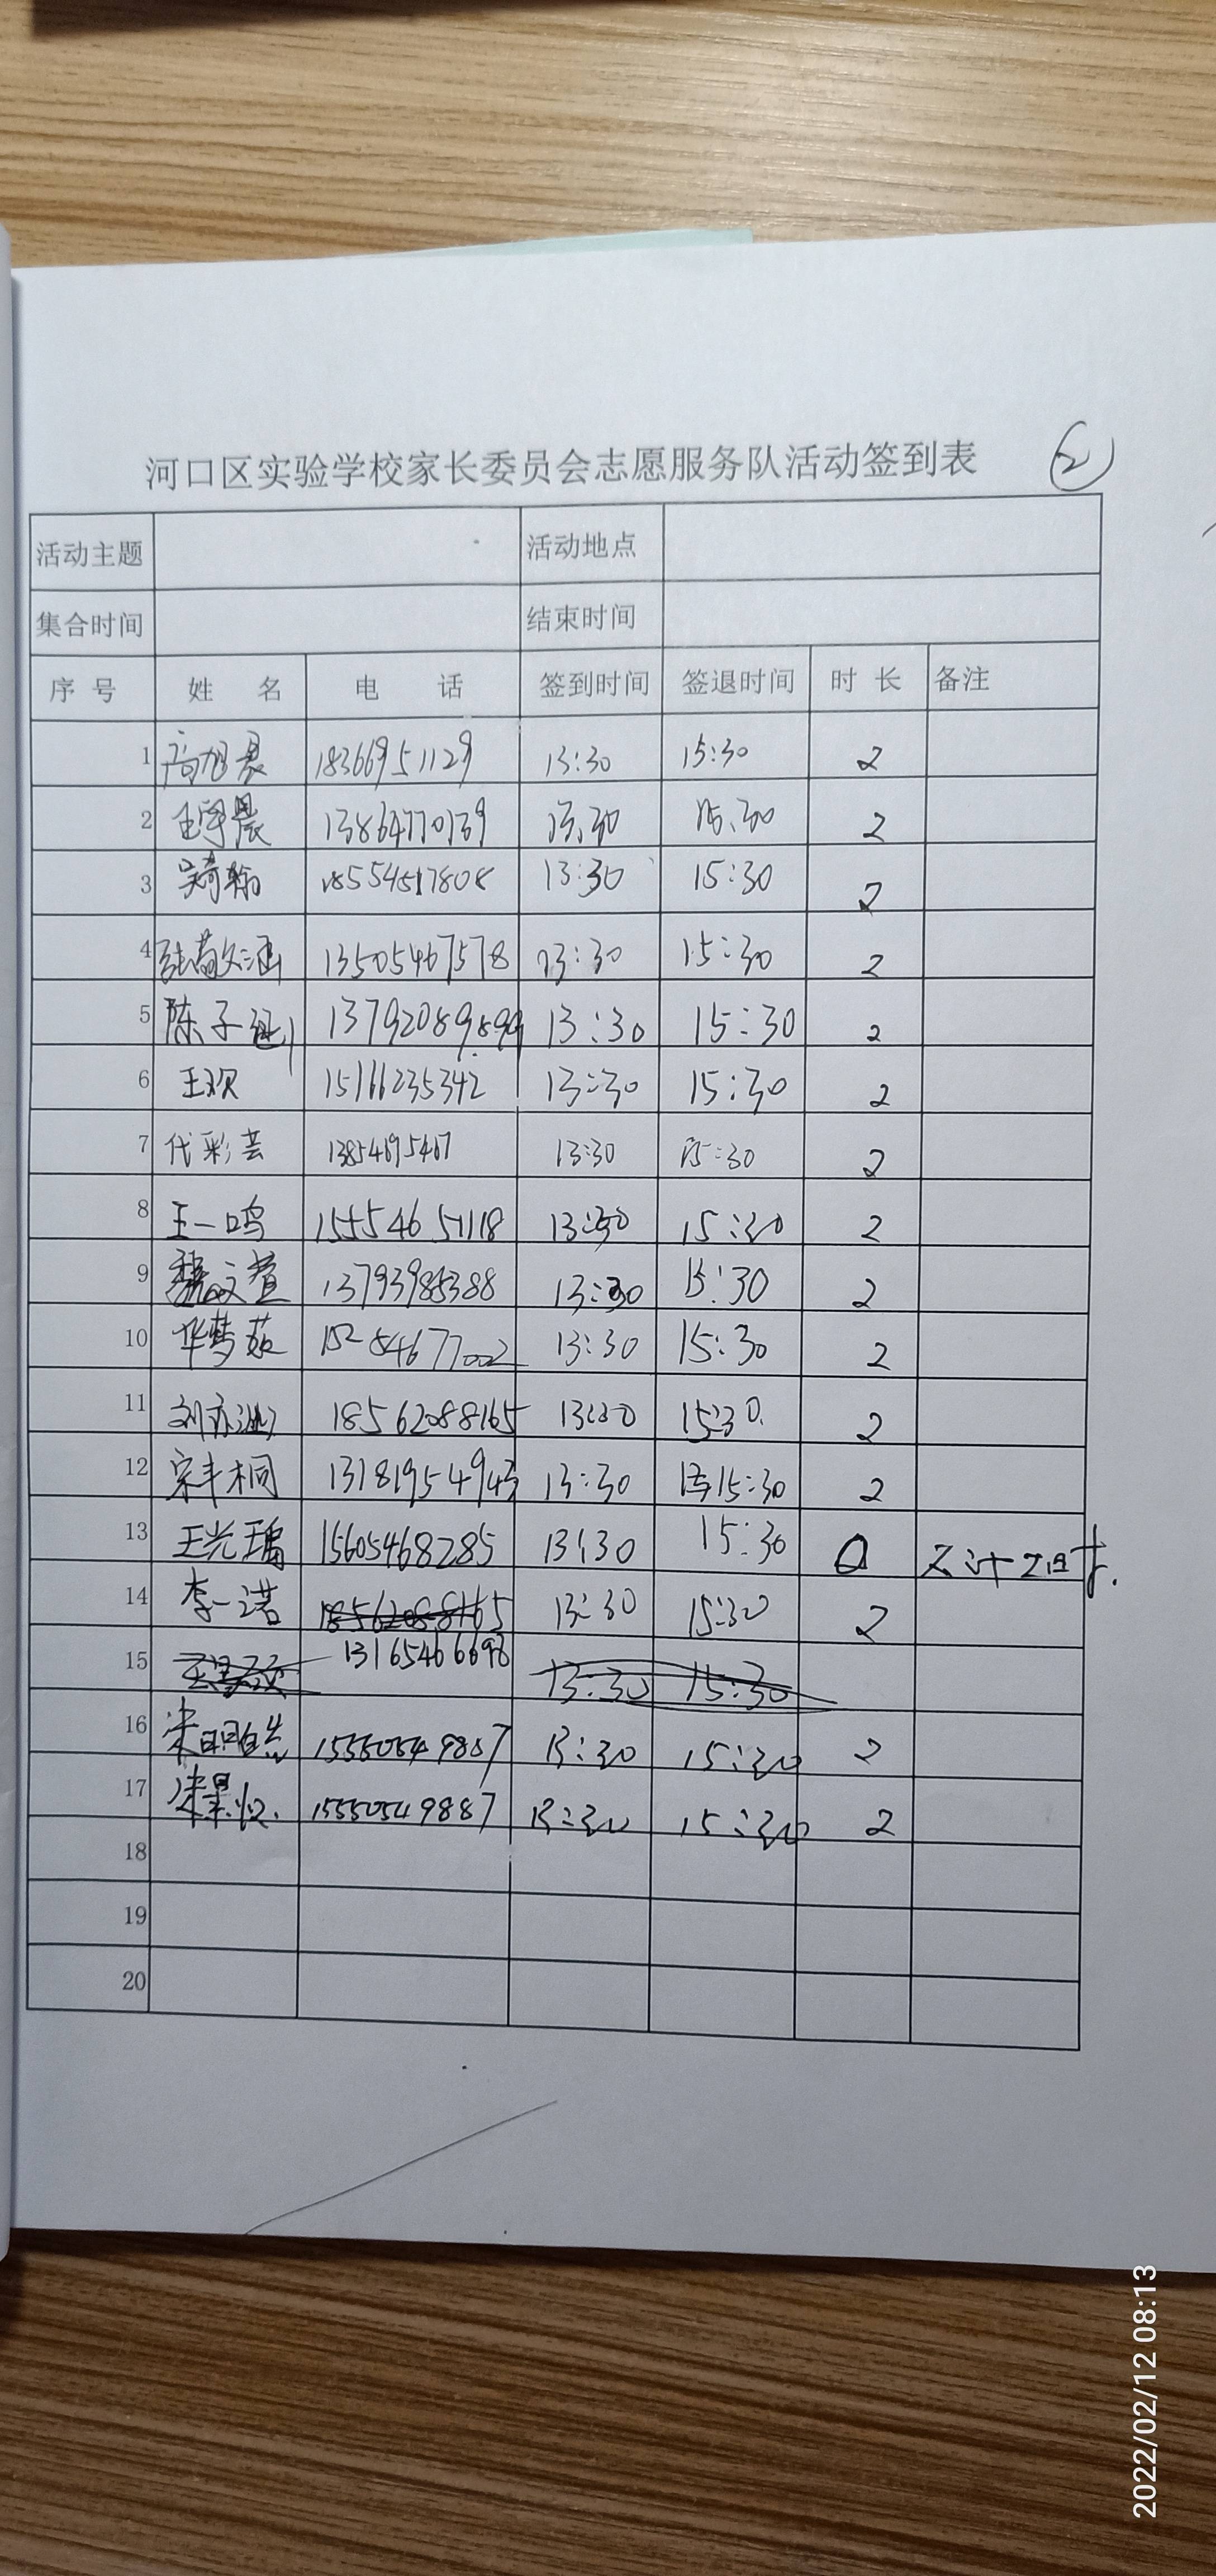 河口区实验学校家长委员会志愿服务队活动签到表 ②
活动主题 活动地点
集合时间 结束时间
序号 姓名 电话 签到时间 签退时间 时长 备注
1 高旭晨 18366951129 13:30 15:30 2
2 13864770739 13:30 15:30 2
3 吴奇翰 18554517808 13:30 15:30 2
4 张敬文涵 13505467578 13:30 15:30 2
5 陈子涵 13792089899 13:30 15:30 2
6 王欢 15166235342 13:30 15:30 2
7 代彩芸 13:30 15:30 2
8 王一鸣 15554651118 13:30 15:30 2
9 魏文萱 13793985388 13:30 15:30 2
10 华梦茹 15254677002 13:30 15:30 2
11 刘亦 18562088165 13:30 15:30 2
12 宋丰桐 13181954943 13:30 15:30 2
13 王光瑞 15605468285 13:30 15:30 0
14 李一诺 18562088165 13:30 15:30 2
15 13165466698 13:30 15:30
16 15550549887 13:30 15:30 2
17 15550549887 13:30 15:30 2
18
19
20
2022/02/12 08:13